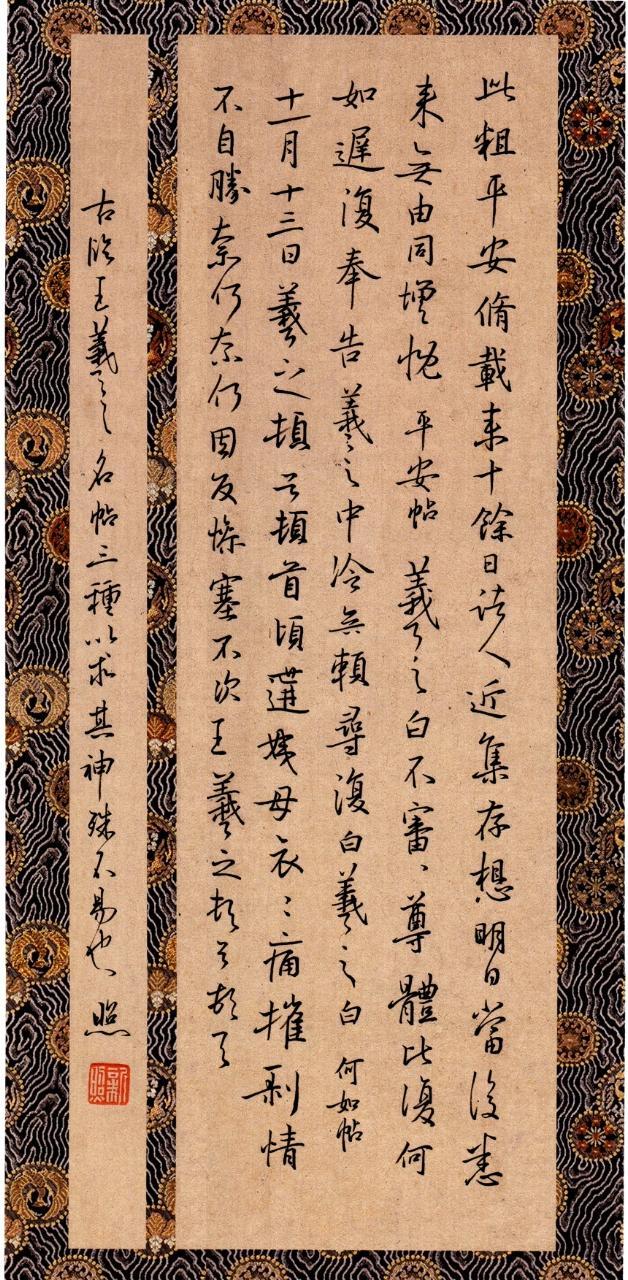 此粗平安脩載来十餘日諸人近集存想明日當復悉
来無由同增慨 平安帖 羲之白不審、尊體比復何
如遲復奉告羲之中冷無賴尋復白羲之白 何如帖
十一月十三日羲之頓首頓首頃遘姨母哀〻痛摧剥情
不自勝奈何奈何因反惨塞不次王羲之頓首頓首
右臨王羲之名帖三種以求其神殊不易也 照
新照